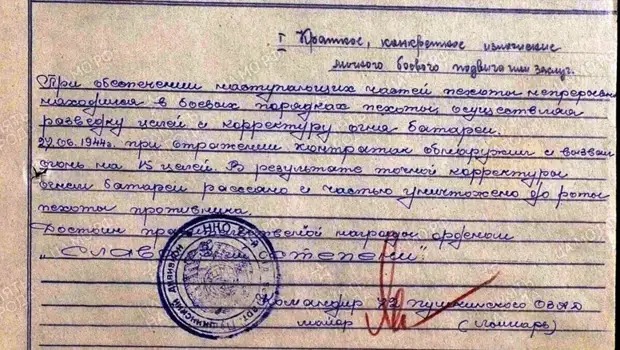 I Краткое, конкретное изложение
личного боевого подвига или заслуг.
При обеспечении наступающих частей пехоты непрерывно
находился в боевых порядках пехоты, осуществляя
разведку целей и корректуру огня батареи.
22.06.1944г. при отражении контратак обнаружил и вызвал
огонь на 15 целей. В результате точной корректуры
огнем батареи рассеяно и частью уничтожено до роты
пехоты противника.
Достоин правительственной награды орденом
"Слава степени".
Командир 22 Пушкинского ОЗАД
майор